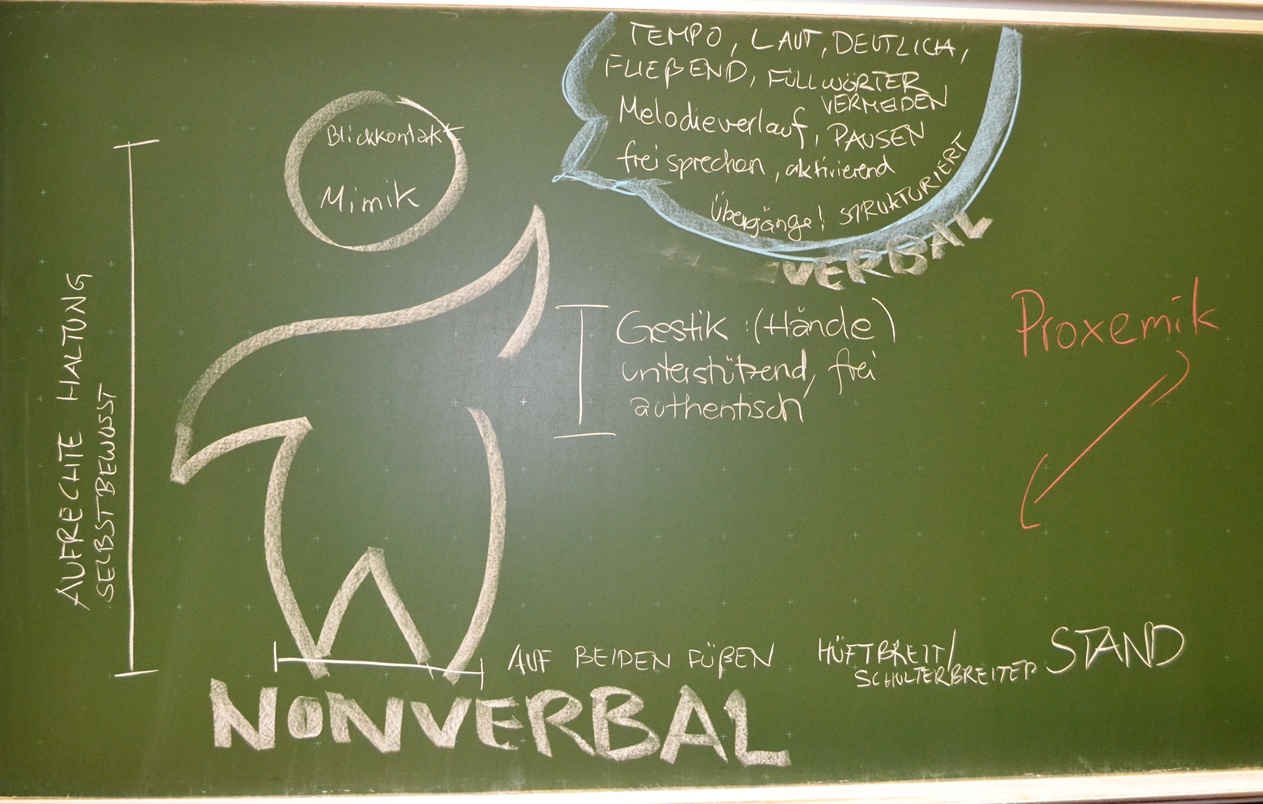 TEMPO, LAUT, DEUTLICH,
FLIEßEND, FÜLLWÖRTER
VERMEIDEN
Melodieverlauf, PAUSEN
frei sprechen, aktivierend
Übergänge! STRUKTURIERT
VERBAL
Blickkontakt
Mimik
AUFRECHTE HALTUNG
SELBSTBEWUSST
Gestik (Hände)
unterstützend, frei
authentisch
Proxemik
AUF BEIDEN FÜßEN HÜFTBREIT/
SCHULTERBREITER STAND
NONVERBAL